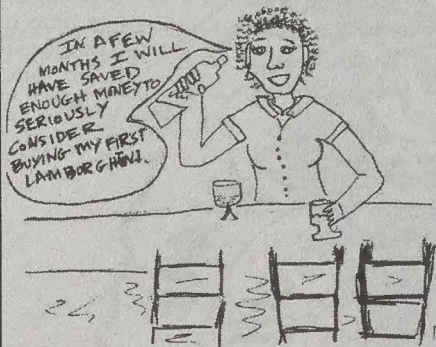 IN A FEW
MONTHS I WILL
HAVE SAVED
ENOUGH MONEY TO
SERIOUSLY
CONSIDER
BUYING MY FIRST
LAMBORGHINI.